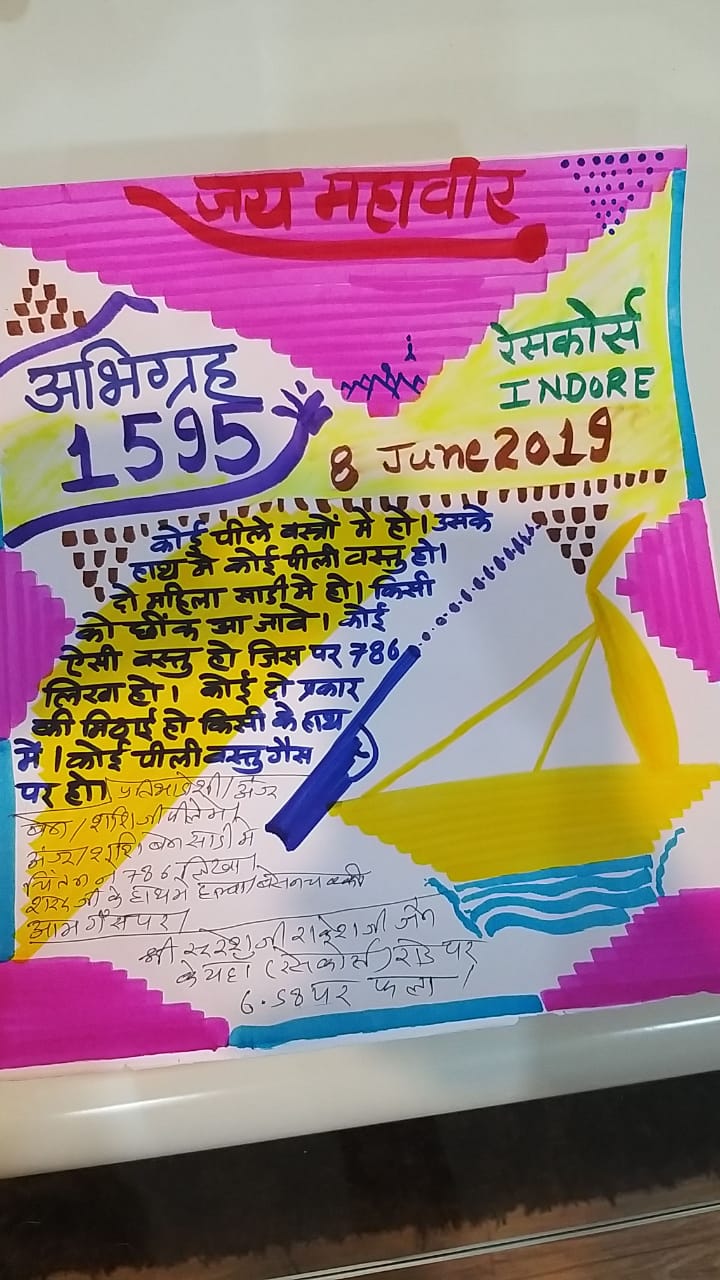 जय महावीर
रेसकोर्स
INDORE
अभिग्रह
1595
8 June 2019
कोई पीले वस्त्रों मे हो। उसके
हाथ मे कोई पीली वस्तु हो।
दो महिला साडी मे हो। किसी
को छींक आ जावे। कोई
ऐसी वस्तु हो जिस पर 786
लिखा हो। कोई दो प्रकार
की मिठाई हो किसी के हाथ
में। कोई पीली वस्तु गैस
पर हो।
बेन/शशि जी पीले मे।
मंजू/शशि बेन साडी मे
ने 786 लिखा।
के हाथ मे हलवा/बेसन चक्की
आम गैस पर।
श्री जी राकेश जी जैन
के यहा (रेसकोर्स) रोड पर
6.58 पर फला।